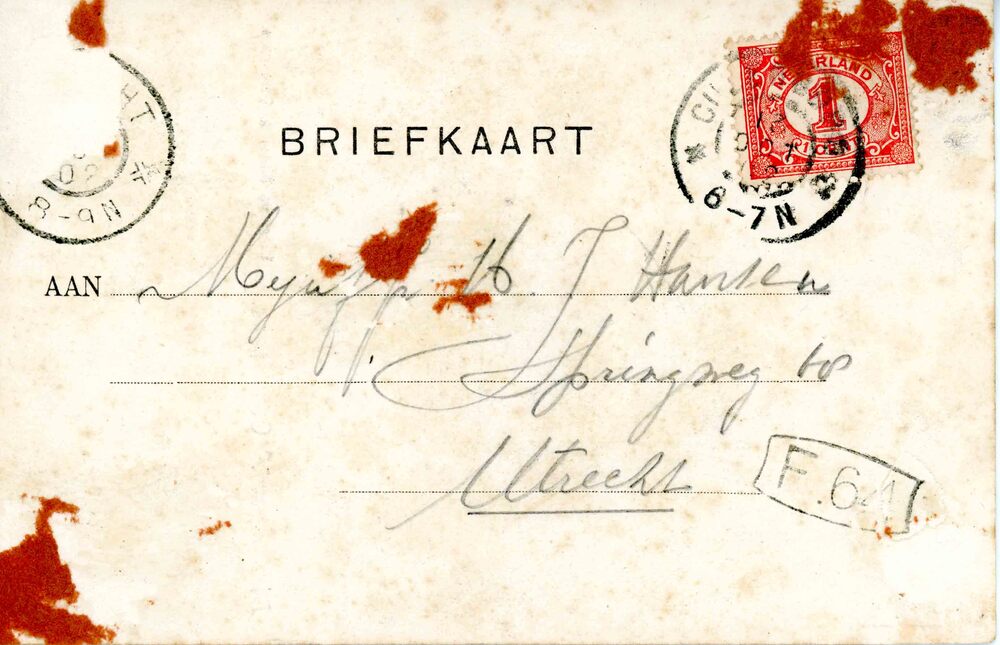 BRIEFKAART
NEDERLAND
1
CENT
6-7N
HT
02
8-9N
AAN Mejuffr. H. J Hansen
Springweg 68
Utrecht
F.641